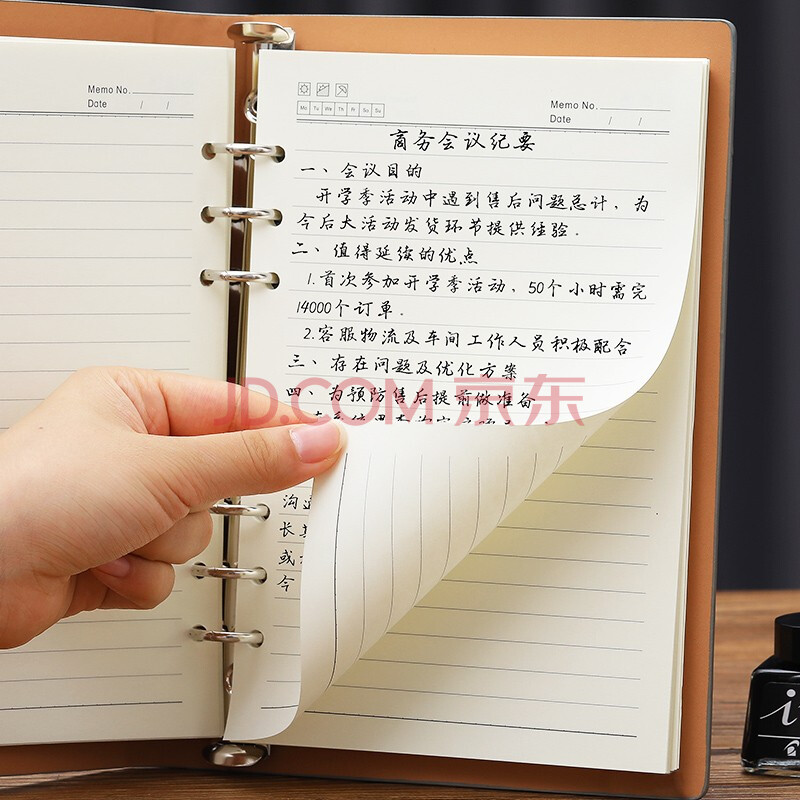 Memo No.
Date / /
Mo Tu We Th Fr Sa Su
Memo No.
Date / /
商务会议纪要
一、会议目的
开学季活动中遇到售后问题总计，为
今后大活动发货环节提供经验.
二、值得延续的优点
1.首次参加开学季活动，50个小时需完
14000个订单.
2.客服物流及车间工作人员积极配合
三、存在问题及优化方案
四、为预防售后提前做准备
JD.COM 京东
沟通
长
或
今
i